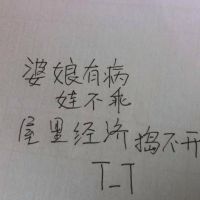 婆娘有病
娃不乖
屋里经济搞不开
T_T